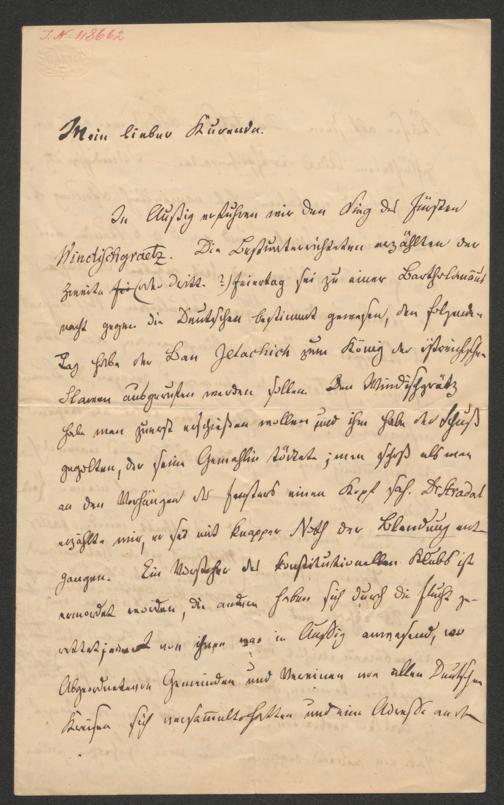 I. N. 48662
Mein lieber Kuranda.
In Außig erfuhren wir den Sieg des Fürsten
Windischgraetz. Die Bestunterrichteten erzählten der
zweite (oder dritte?) Feiertag sei zu einer Bartholomäus
nacht gegen die Deutschen bestimmt gewesen, den folgenden
Tag habe der Ban Jelachich zum König der östreichischen
Slaven ausgerufen werden sollen. Den Windischgrätz
habe man zuerst erschießen wollen und ihm habe der Schuß
gegolten, der seine Gemahlin tödtete; man schoß als man
an den Vorhängen des Fensters einen Kopf sah. Dr Stradal
erzählte mir, er sei mit knapper Noth der Blendung ent-
gangen. Ein Vorsteher des konstitutionellen Klubs ist
ermordet worden, die andern haben sich durch die Flucht ge-
rettet; von ihnen war in Außig anwesend, wo
Abgeordnete von Gemeinden und Vereinen von allen Deutschen
Kreisen sich versammelt hatten und eine Adresse